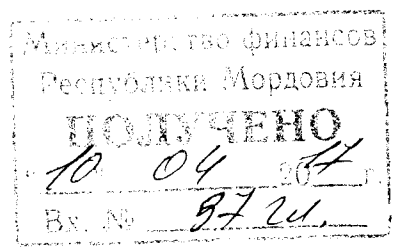 Министерство финансов
Республики Мордовия
ПОЛУЧЕНО
"10" 04 2017 г.
Вх. №